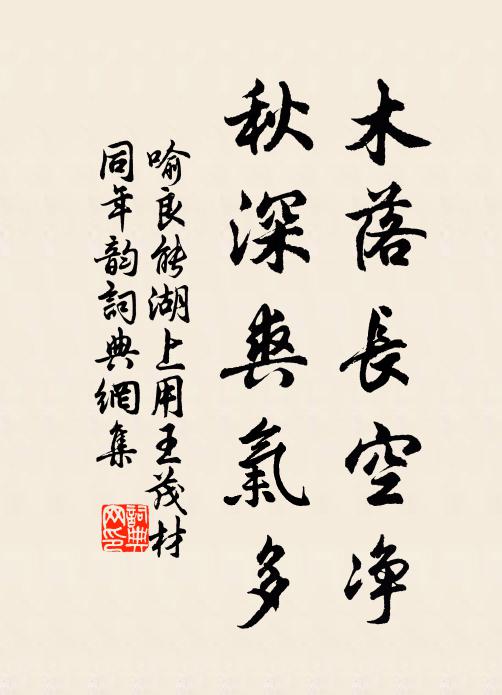 木落長空净
秋深爽氣多
喻良能湖上用王茂材
同年韵詞典網集
詞典网印